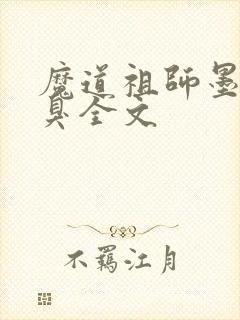 魔道祖師墨
臭全文
不羈江月